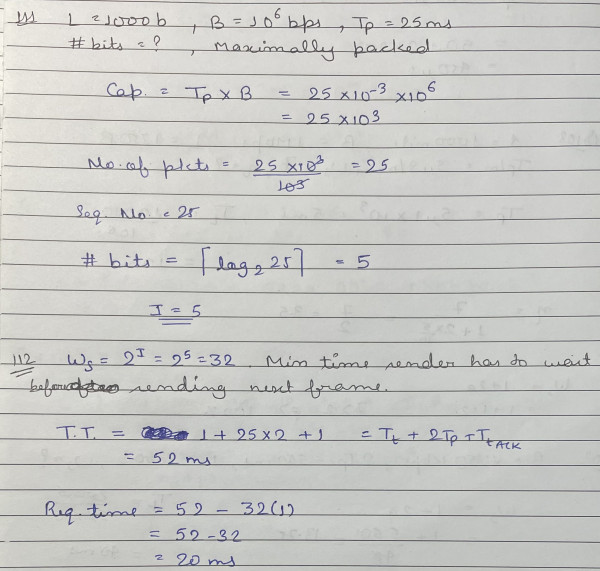 111 L = 1000b , B = 10⁶ bps , Tp = 25ms
# bits = ? , Maximally packed
Cap. = Tp × B = 25 × 10⁻³ × 10⁶
= 25 × 10³
No. of pkts = 25 × 10³ / 10³ = 25
Seq. No. = 25
# bits = ⌈log₂ 25⌉ = 5
I = 5
112 Ws = 2ᴵ = 2⁵ = 32 . Min time sender has to wait
before sending next frame.
T.T. = 1 + 25 × 2 + 1 = Tt + 2Tp + Tt ACK
= 52 ms
Req. time = 52 - 32(1)
= 52 - 32
= 20 ms